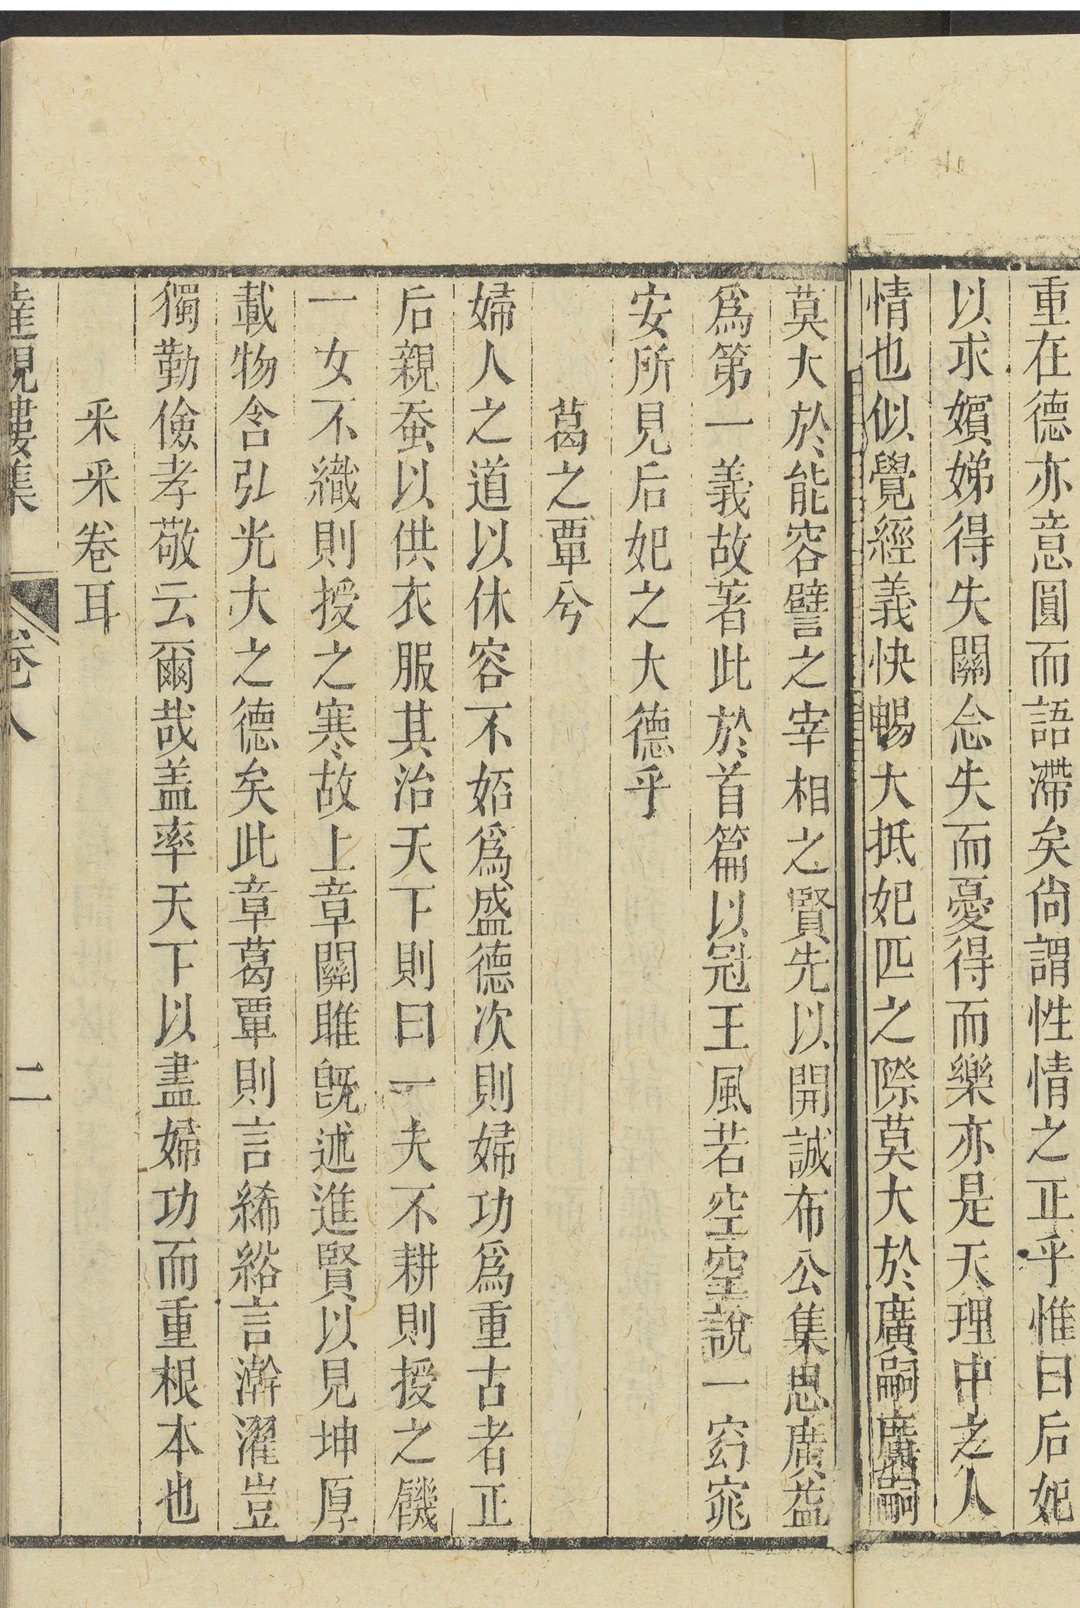 重在德亦意圓而語滯矣尙謂性情之正乎惟曰后妃
以求嬪娣得失關念失而憂得而樂亦是天理中之人
情也似覺經義快暢大抵妃匹之際莫大於廣嗣廣嗣
莫大於能容譬之宰相之賢先以開誠布公集思廣益
爲第一義故著此於首篇以冠王風若空空說一窈窕
安所見后妃之大德乎
葛之覃兮
婦人之道以休容不妬爲盛德次則婦功爲重古者正
后親蚕以供衣服其治天下則曰一夫不耕則授之饑
一女不織則授之寒故上章關雎旣述進賢以見坤厚
載物含弘光大之德矣此章葛覃則言絺綌言澣濯豈
獨勤儉孝敬云爾哉盖率天下以盡婦功而重根本也
采采卷耳
達觀樓集 卷八 二